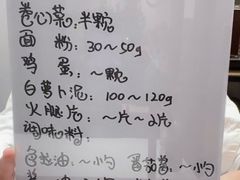 卷心菜:半颗
面 粉:30~50g
鸡 蛋:~颗
白萝卜泥:100~120g
火腿片:~片~2片
调味料:
色拉油:~小勺 番茄酱:~小勺